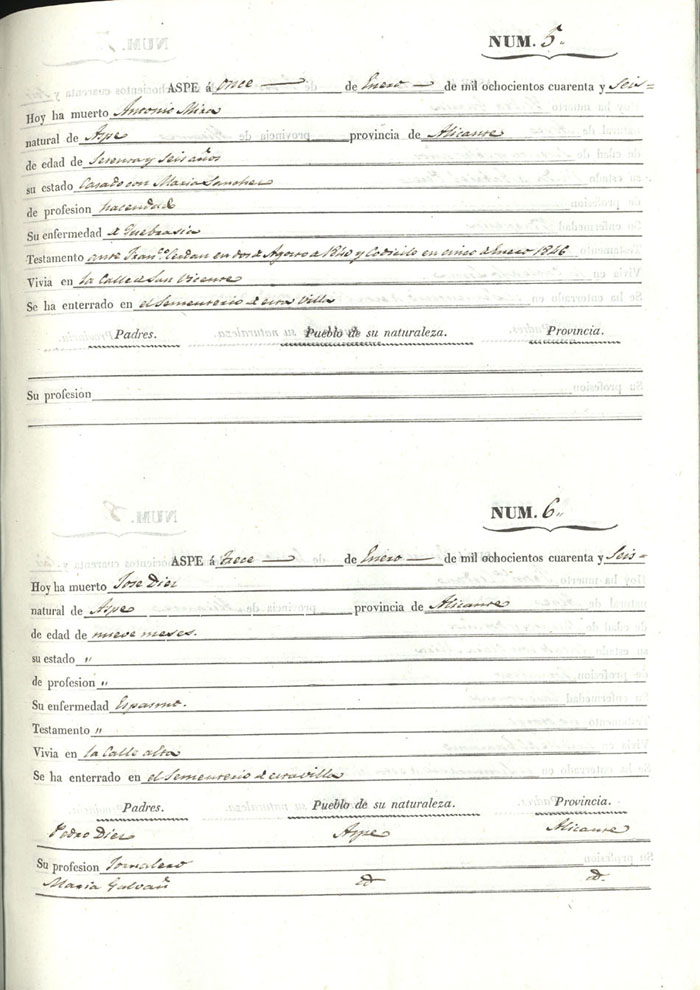 NUM. 5.
ASPE á once de Enero de mil ochocientos cuarenta y Seis=
Hoy ha muerto Antonio Mira
natural de Aspe provincia de Alicante
de edad de Setenta y Seis años
su estado Casado con Maria Sanchez
de profesion hacendad
Su enfermedad de quebrasia
Testamento ante Franco. Cerdan en dos de Agosto de 1840 y Codicilo en cinco de Enero 1846
Vivia en la Calle de San Vicente
Se ha enterrado en el Sementerio de esta Villa
Padres. Pueblo de su naturaleza. Provincia.
Su profesion
NUM. 6"
ASPE á trece de Enero de mil ochocientos cuarenta y Seis=
Hoy ha muerto Jose Diez
natural de Aspe provincia de Alicante
de edad de nueve meses.
su estado "
de profesion "
Su enfermedad Espasmo.
Testamento "
Vivia en la Calle alta
Se ha enterrado en el Sementerio de esta villa
Padres. Pueblo de su naturaleza. Provincia.
Pedro Diez Aspe Alicante
Su profesion Jornalero
Maria Galvañ id. id.